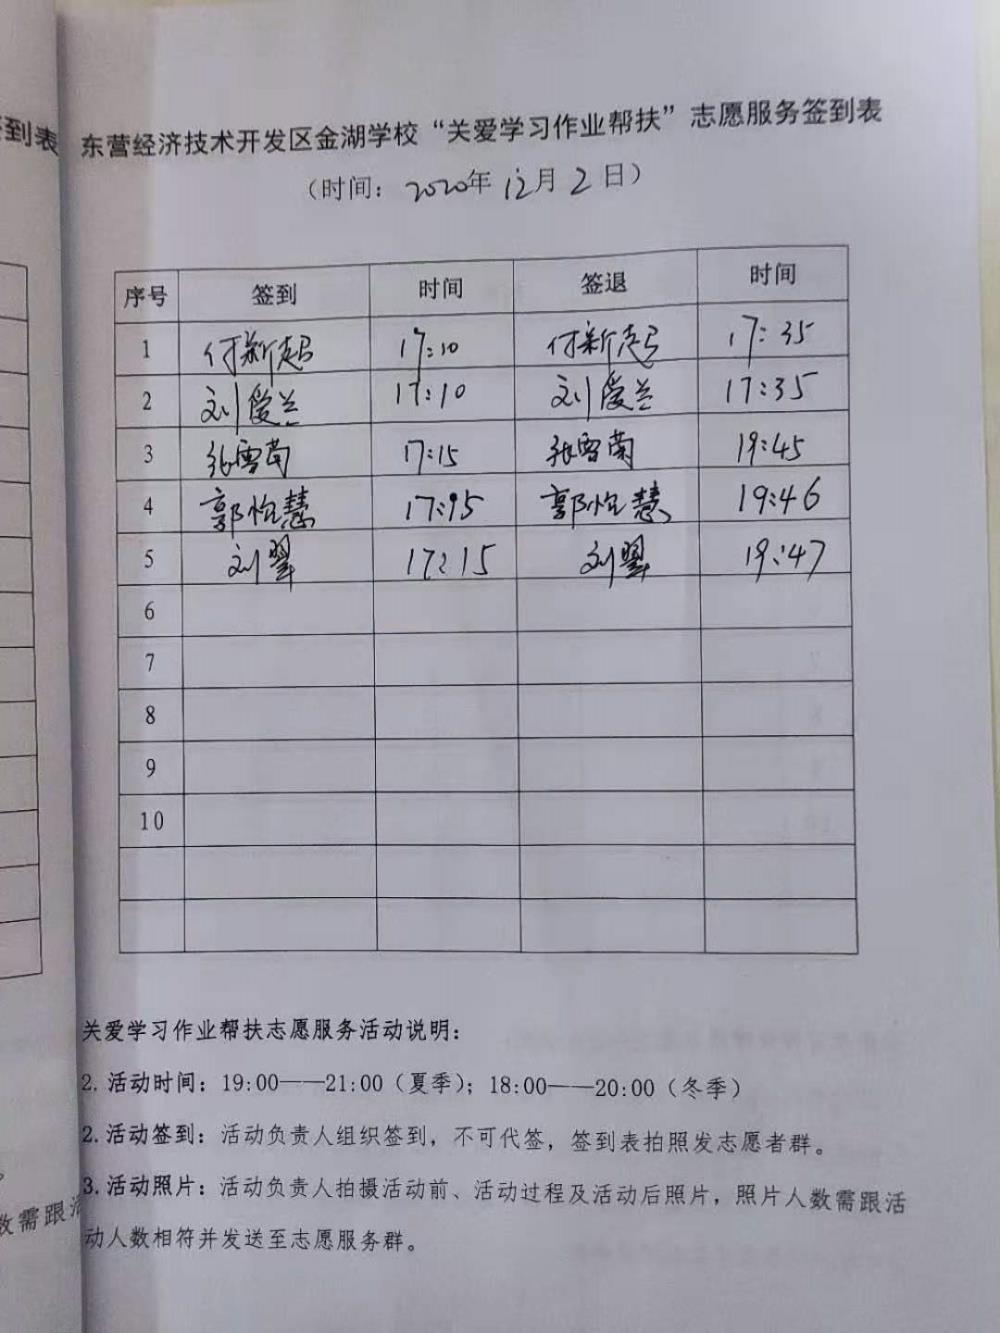 到表
东营经济技术开发区金湖学校“关爱学习作业帮扶”志愿服务签到表
（时间：2020年12月2日）
序号 签到 时间 签退 时间
1 付新起 17:10 付新起 17:35
2 刘爱兰 17:10 刘爱兰 17:35
3 张雪南 17:15 张雪南 19:45
4 郭怡慧 17:15 郭怡慧 19:46
5 刘翠 17:15 刘翠 19:47
6
7
8
9
10
关爱学习作业帮扶志愿服务活动说明：
2.活动时间：19:00——21:00（夏季）；18:00——20:00（冬季）
2.活动签到：活动负责人组织签到，不可代签，签到表拍照发志愿者群。
3.活动照片：活动负责人拍摄活动前、活动过程及活动后照片，照片人数需跟活
数需跟活
动人数相符并发送至志愿服务群。